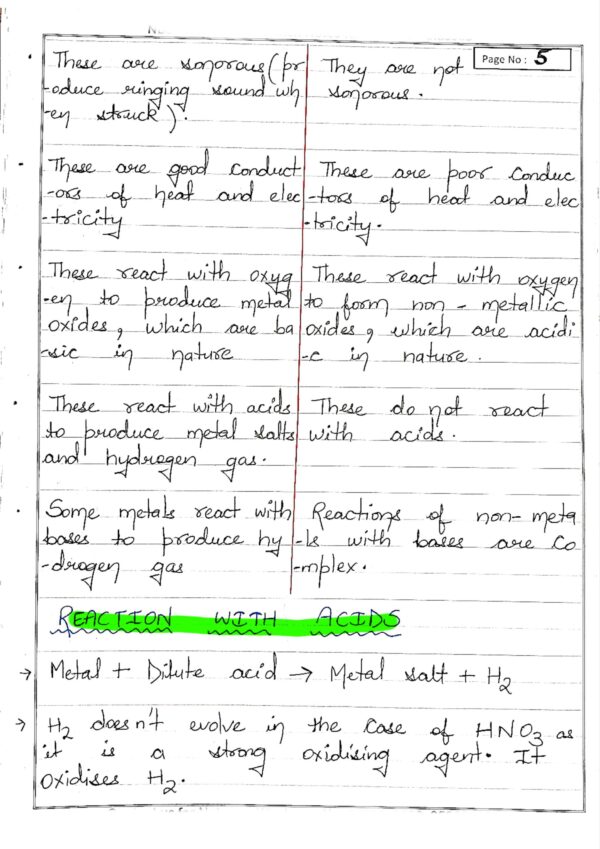 Page No : 5
These are sonorous (pr
-oduce ringing sound wh
-en struck).
They are not
sonorous.
These are good conduct
-ors of heat and elec
-tricity
These are poor conduc
-tors of heat and elec
-tricity.
These react with oxyg
-en to produce metal
oxides, which are ba
-sic in nature
These react with oxygen
to form non-metallic
oxides, which are acidi
-c in nature.
These react with acids
to produce metal salts
and hydrogen gas.
These do not react
with acids.
Some metals react with
bases to produce hy
-drogen gas
Reactions of non-meta
-ls with bases are co
-mplex.
REACTION WITH ACIDS
→ Metal + Dilute acid → Metal salt + H₂
→ H₂ doesn't evolve in the case of HNO₃ as
it is a strong oxidising agent. It
oxidises H₂.